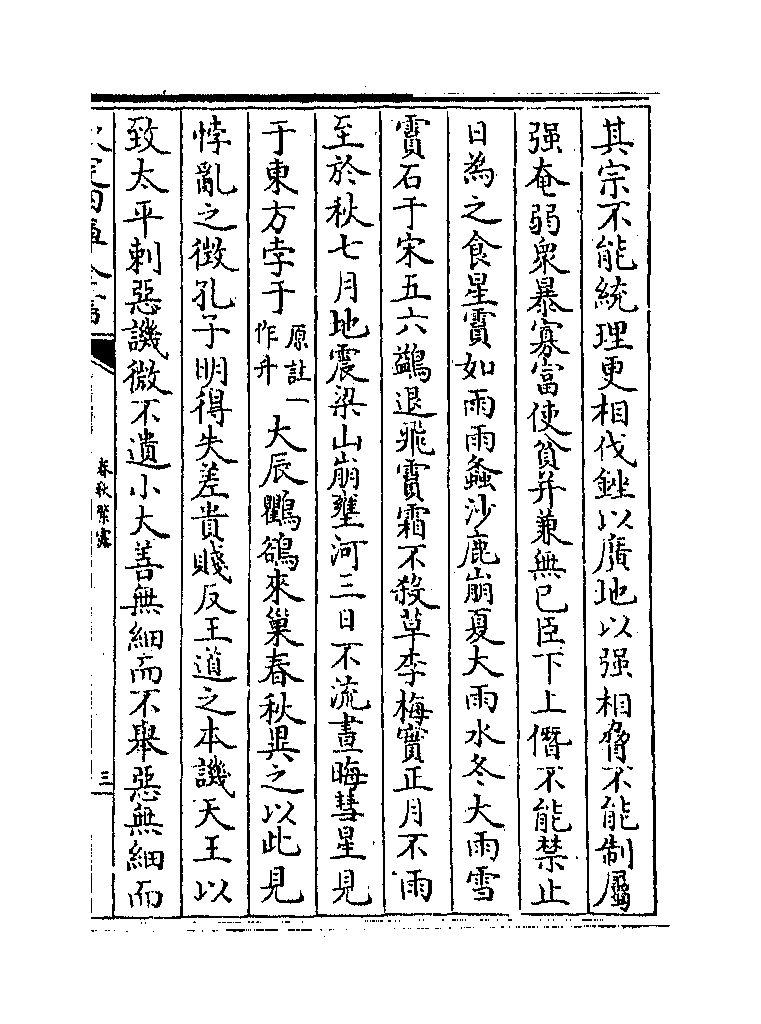 其宗不能統理更相伐銼以廣地以强相脅不能制屬
强奄弱衆暴寡富使貧并兼無已臣下上僭不能禁止
日為之食星霣如雨雨螽沙鹿崩夏大雨水冬大雨雪
霣石于宋五六鷁退飛霣霜不殺草李梅實正月不雨
至於秋七月地震梁山崩壅河三日不流晝晦彗星見
于東方孛于原註一作升大辰鸜鵒來巢春秋異之以此見
悖亂之徴孔子明得失差貴賤反王道之本譏天王以
致太平刺惡譏微不遺小大善無細而不舉惡無細而
春秋繁露
三